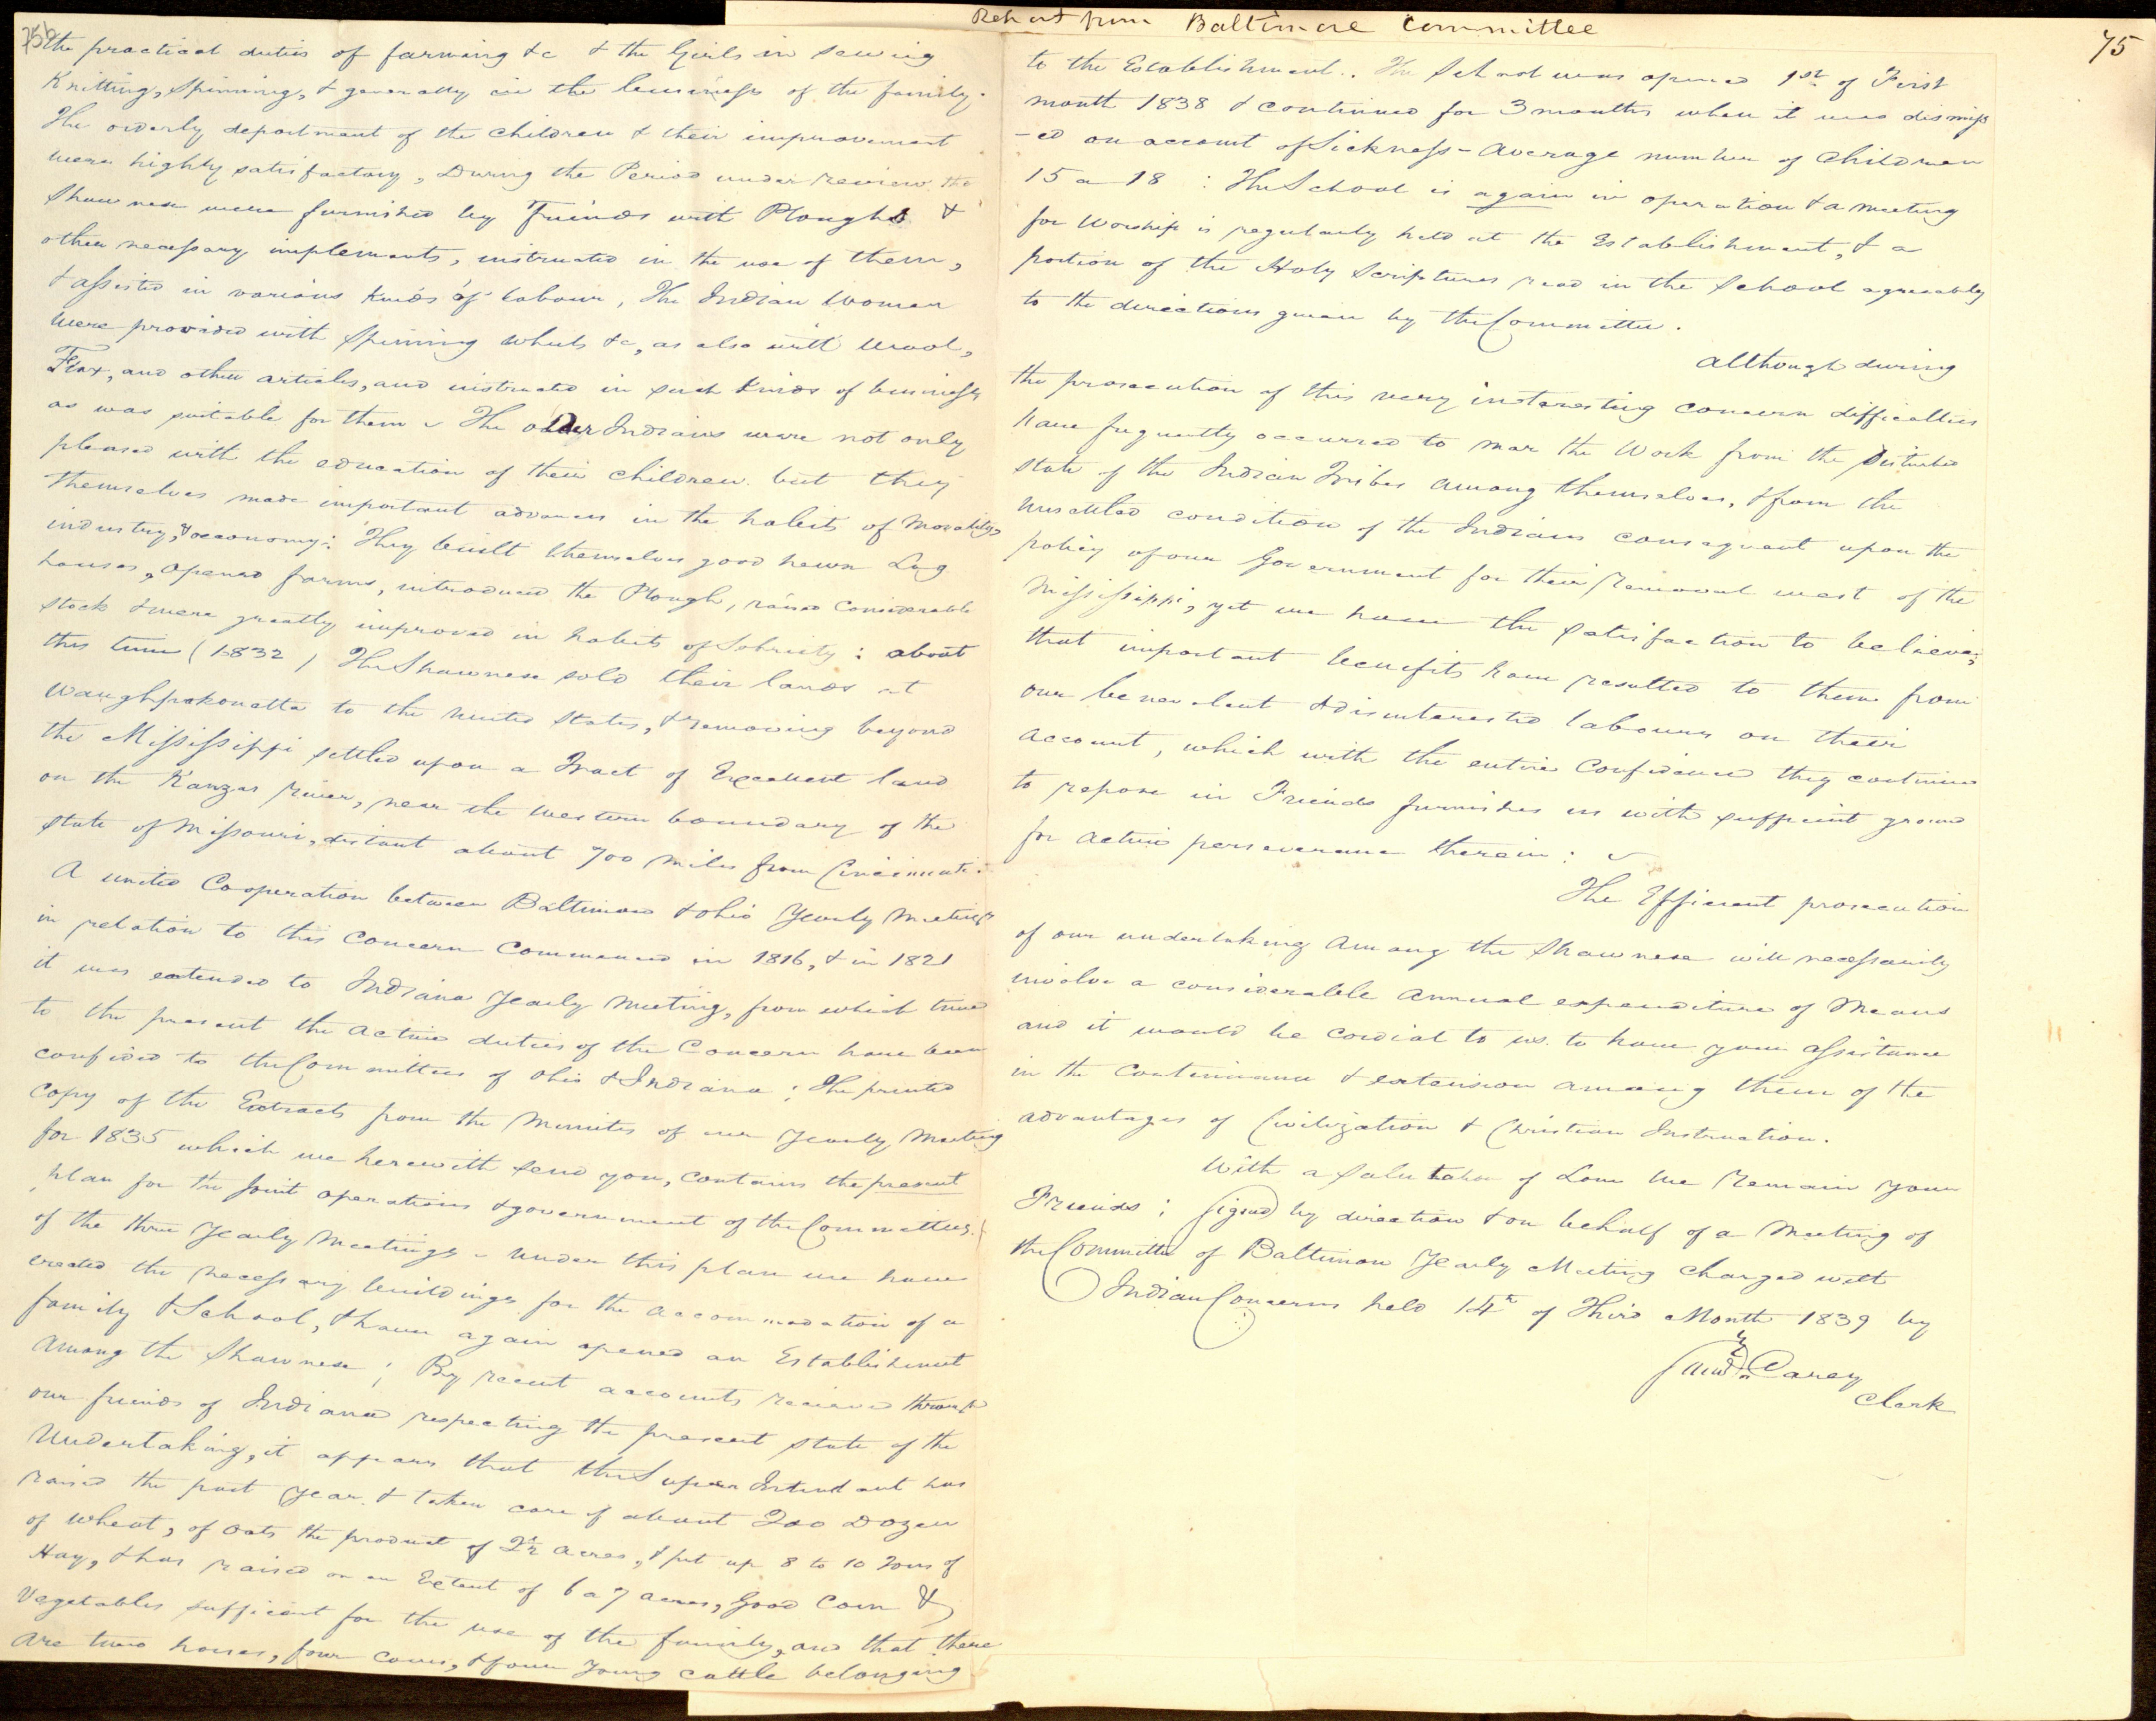 Report from Baltimore Committee
75
75b
the practical duties of farming &c & the Girls in sewing
Knitting, Spinning, & generally in the business of the family.
The orderly deportment of the children & their improvement
were highly satisfactory, During the Period under review the
Shawnese were furnished by Friends with Ploughs &
other necessary implements, instructed in the use of them,
& assisted in various kinds of labour, The Indian Women
were provided with Spinning wheels &c, as also with Wool,
Flax, and other articles, and instructed in such kinds of business
as was suitable for them - The older Indians were not only
pleased with the education of their children but they
themselves made important advances in the habits of Morality,
industry, & oeconomy: They built themselves good hewn Log
houses, opened farms, introduced the Plough, raised Considerable
stock & were greatly improved in habits of Sobriety: about
this time (1832) The Shawnese sold their lands at
Waughpakonatta to the United States, & removing beyond
the Mississippi settled upon a Tract of Excellent land
on the Kanzas river, near the Western boundary of the
State of Missouri, distant about 700 miles from Cincinnati.
A united Cooperation between Baltimore & Ohio Yearly Meetings
in relation to this Concern Commenced in 1816, & in 1821
it was extended to Indiana Yearly Meeting, from which time
to the present the active duties of the Concern have been
confided to the Committees of Ohio & Indiana; The printed
Copy of the Extracts from the Minutes of our Yearly Meeting
for 1835 which we herewith send you, contains the present
plan for the joint operations & government of the Committees
of the three Yearly Meetings - Under this plan we have
erected the necessary buildings for the accommodation of a
family & School, & have again opened an Establishment
among the Shawnese; By recent accounts received through
our friends of Indiana respecting the present state of the
Undertaking, it appears that the Super Intendant has
raised the past year & taken care of about 200 Dozen
of wheat, of oats the product of 2½ acres, & put up 8 to 10 Tons of
Hay, & has raised on an Extent of 6 a 7 acres, Good Corn &
Vegetables sufficient for the use of the family, and that there
are two horses, four cows, & four young cattle belonging
to the Establishment.. The School was opened 1st of First
month 1838 & continued for 3 months when it was dismiss
-ed on account of Sickness - Average number of Children
15 a 18 : The School is again in operation & a meeting
for Worship is regularly held at the Establishment, & a
portion of the Holy Scriptures read in the School agreeably
to the directions given by the Committee.
Although during
the prosecution of this very interesting concern difficulties
have frequently occurred to mar the Work from the disturbed
state of the Indian Tribes among themselves, & from the
unsettled condition of the Indians consequent upon the
policy of our Government for their removal west of the
Mississippi, yet we have the satisfaction to believe,
that important benefits have resulted to them from
our benevolent & disinterested labours on their
account, which with the entire Confidence they continue
to repose in Friends furnishes us with sufficient ground
for active perseverance therein:
The Efficient prosecution
of our undertaking among the Shawnese will necessarily
involve a considerable Annual expenditure of Means
and it would be cordial to us to have your assistance
in the Continuance & extension among them of the
advantages of Civilization & Christian Instruction.
With a Salutation of Love we Remain your
Friends; Signed by direction & on behalf of a Meeting of
the Committee of Baltimore Yearly Meeting Charged with
Indian Concerns held 14th of Third Month 1839 by
Carey
Clerk